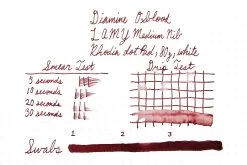 Diamine Oxblood
LAMY Medium Nib
Rhodia dot Pad, 80g, white
Smear Test
Drip Test
5 seconds
10 seconds
20 seconds
30 seconds
1 2 3
Swabs